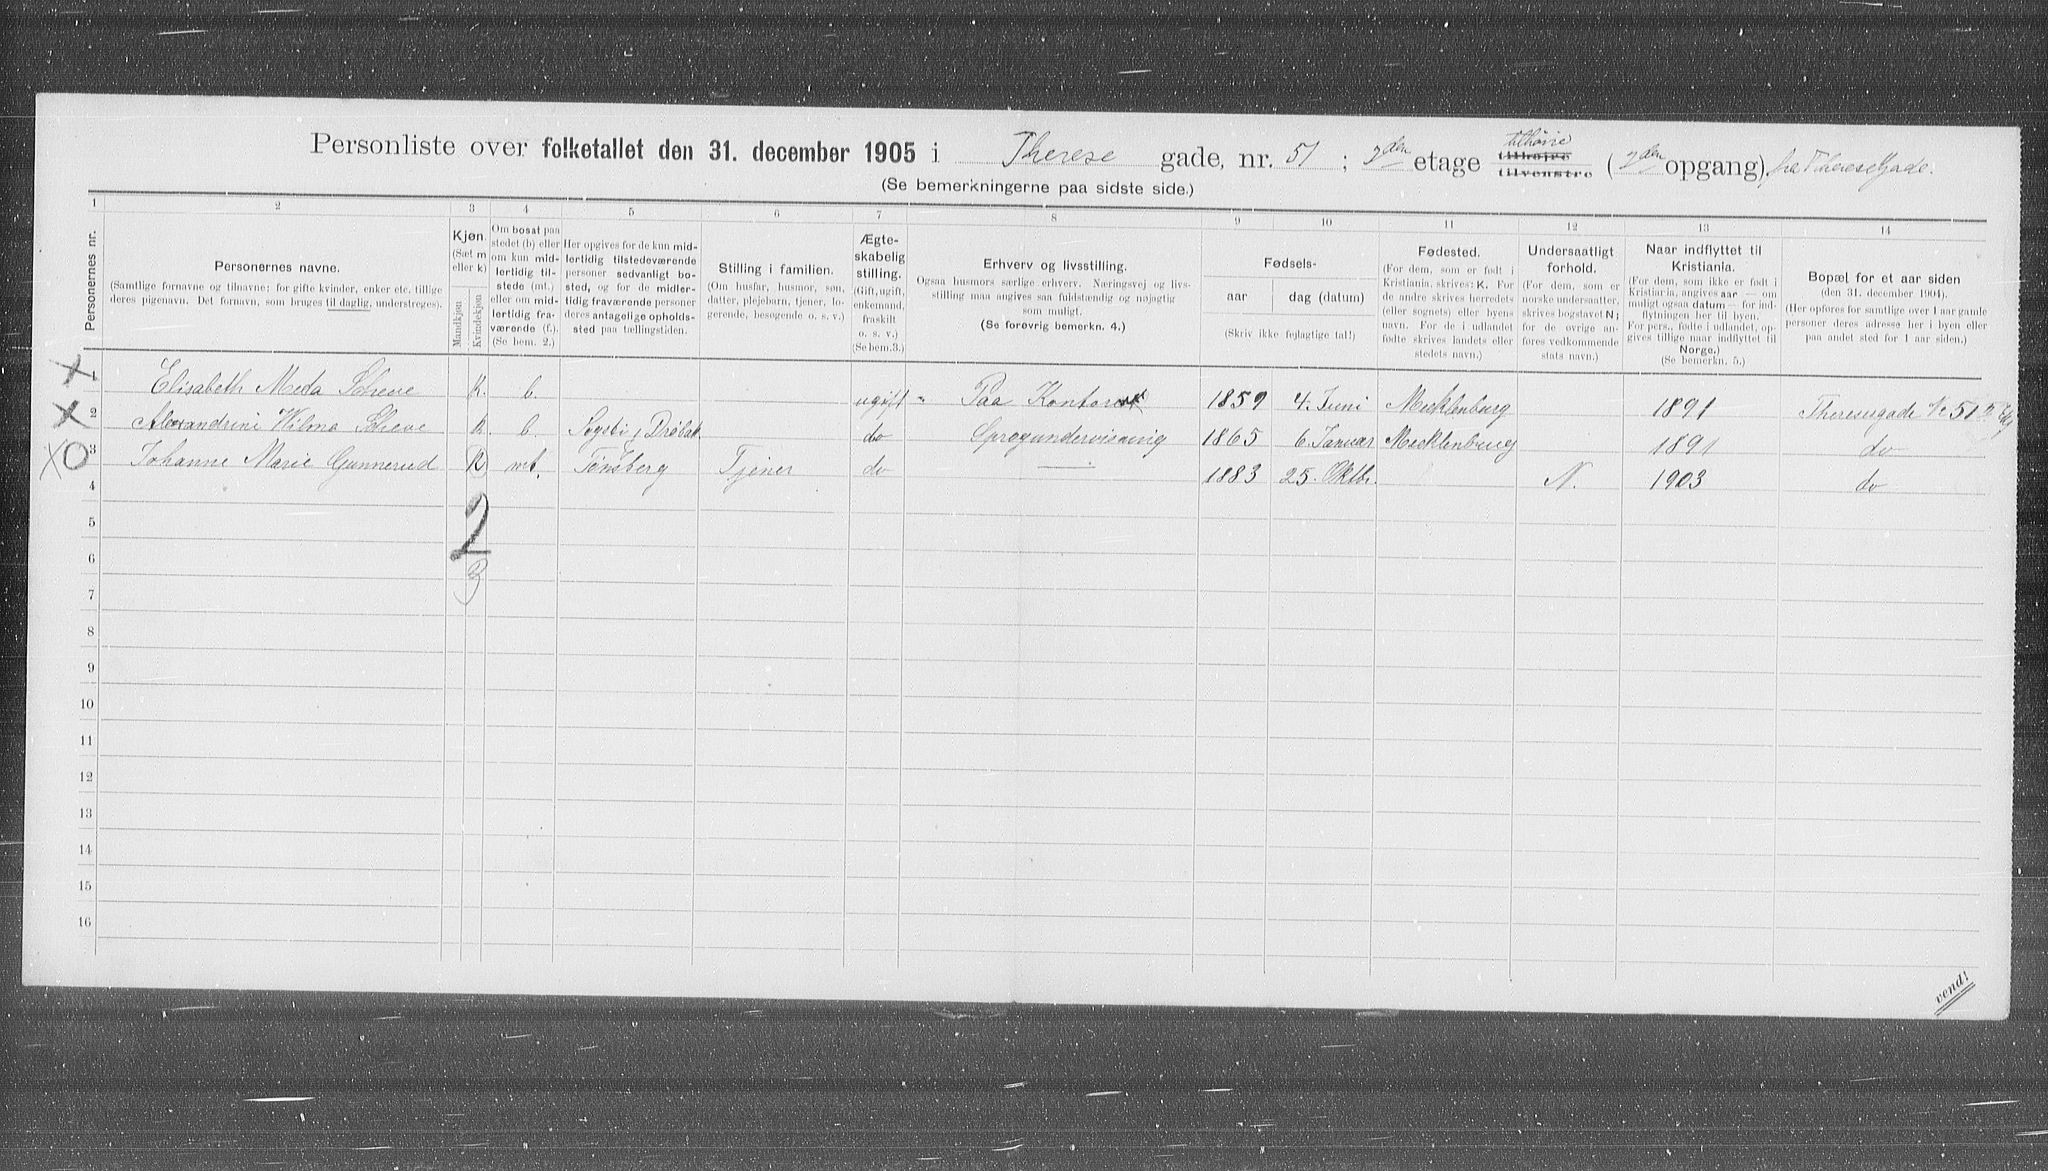 Personliste over folketallet den 31. december 1905 i Therese gade, nr. 51; 2den etage tilhøire tilhøire tilvenstre (2den opgang), fra ThereseGade.
(Se bemerkningerne paa sidste side.)
1 2 3 4 5 6 7 8 9 10 11 12 13 14
Personernes nr.
Personernes navne.
(Samtlige fornavne og tilnavne; for gifte kvinder, enker etc. tillige deres pigenavn. Det fornavn, som bruges til daglig, understreges).
Kjøn.
(Sæt m eller k)
Mandkjøn
Kvindekjøn
Om bosat paa stedet (b) eller om kun midlertidig tilstede (mt.) eller om midlertidig fraværende (f.). (Se bem. 2.)
Her opgives for de kun midlertidig tilstedeværende personer sedvanligt bosted, og for de midlertidig fraværende personer deres antagelige opholdssted paa tællingstiden.
Stilling i familien.
(Om husfar, husmor, søn, datter, plejebarn, tjener, logerende, besøgende o. s. v.)
Ægteskabelig stilling.
(Gift, ugift, enkemand, fraskilt o. s. v.)
(Se bem. 3.)
Erhverv og livsstilling.
Ogsaa husmors særlige erhverv. Næringsvej og livsstilling maa angives saa fuldstændig og nøjagtig som muligt.
(Se forøvrig bemerkn. 4.)
Fødsels-
aar
dag (datum)
(Skriv ikke fejlagtige tal!)
Fødested.
(For dem, som er født i Kristiania, skrives: K. For de andre skrives herredets (eller sognets) eller byens navn. For de i udlandet fødte skrives landets eller stedets navn.)
Undersaatligt forhold.
(For dem, som er norske undersaatter, skrives bogstavet N; for de øvrige anføres vedkommende stats navn.)
Naar indflyttet til Kristiania.
(For dem, som ikke er født i Kristiania, angives aar — om muligt ogsaa datum — for indflytningen her til byen. For pers., fødte i udlandet, opgives tillige naar indflyttet til Norge.)
(Se bemerkn. 5.)
Bopæl for et aar siden
(den 31. december 1904).
(Her opføres for samtlige over 1 aar gamle personer deres adresse her i byen eller paa andet sted for 1 aar siden.)
1 Elisabeth Meta Scheve K. b. ugift " Paa Kontor 1859 4. Juni Mecklenburg 1891 Theresegade No 51
2 Alexandrine Wilma Scheve K. b. Drøbak do Sprogundervisning 1865 6. Januar Mecklenburg 1891 do
3 Johanne Marie Gunnerud K mt. Tønsberg Tjener do — 1883 25. Oktbr. N. 1903 do
4
2
5
6
3
7
8
9
10
11
12
13
14
15
16
vend!